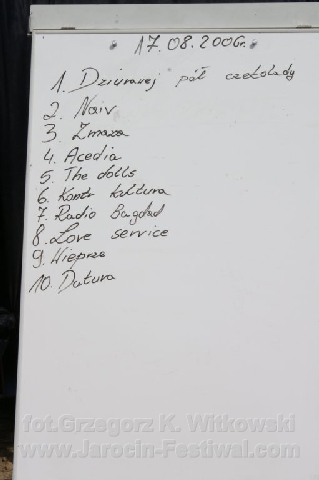 17.08.2006r.
1. Dziurawej pół czekolady
2. Naiv
3. Zmaza
4. Acedia
5. The dolls
6. Kontr kultura
7. Radio Bagdad
8. Love service
9. Wieprze
10. Datura
fot.Grzegorz K. Witkowski
www.Jarocin-Festiwal.com